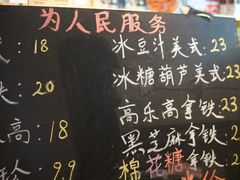 为人民服务
: 18 冰豆汁美式: 23
: 20 冰糖葫芦美式: 23
高乐高拿铁: 23
高: 18 黑芝麻拿铁: 2
: 9.9 棉花糖拿铁